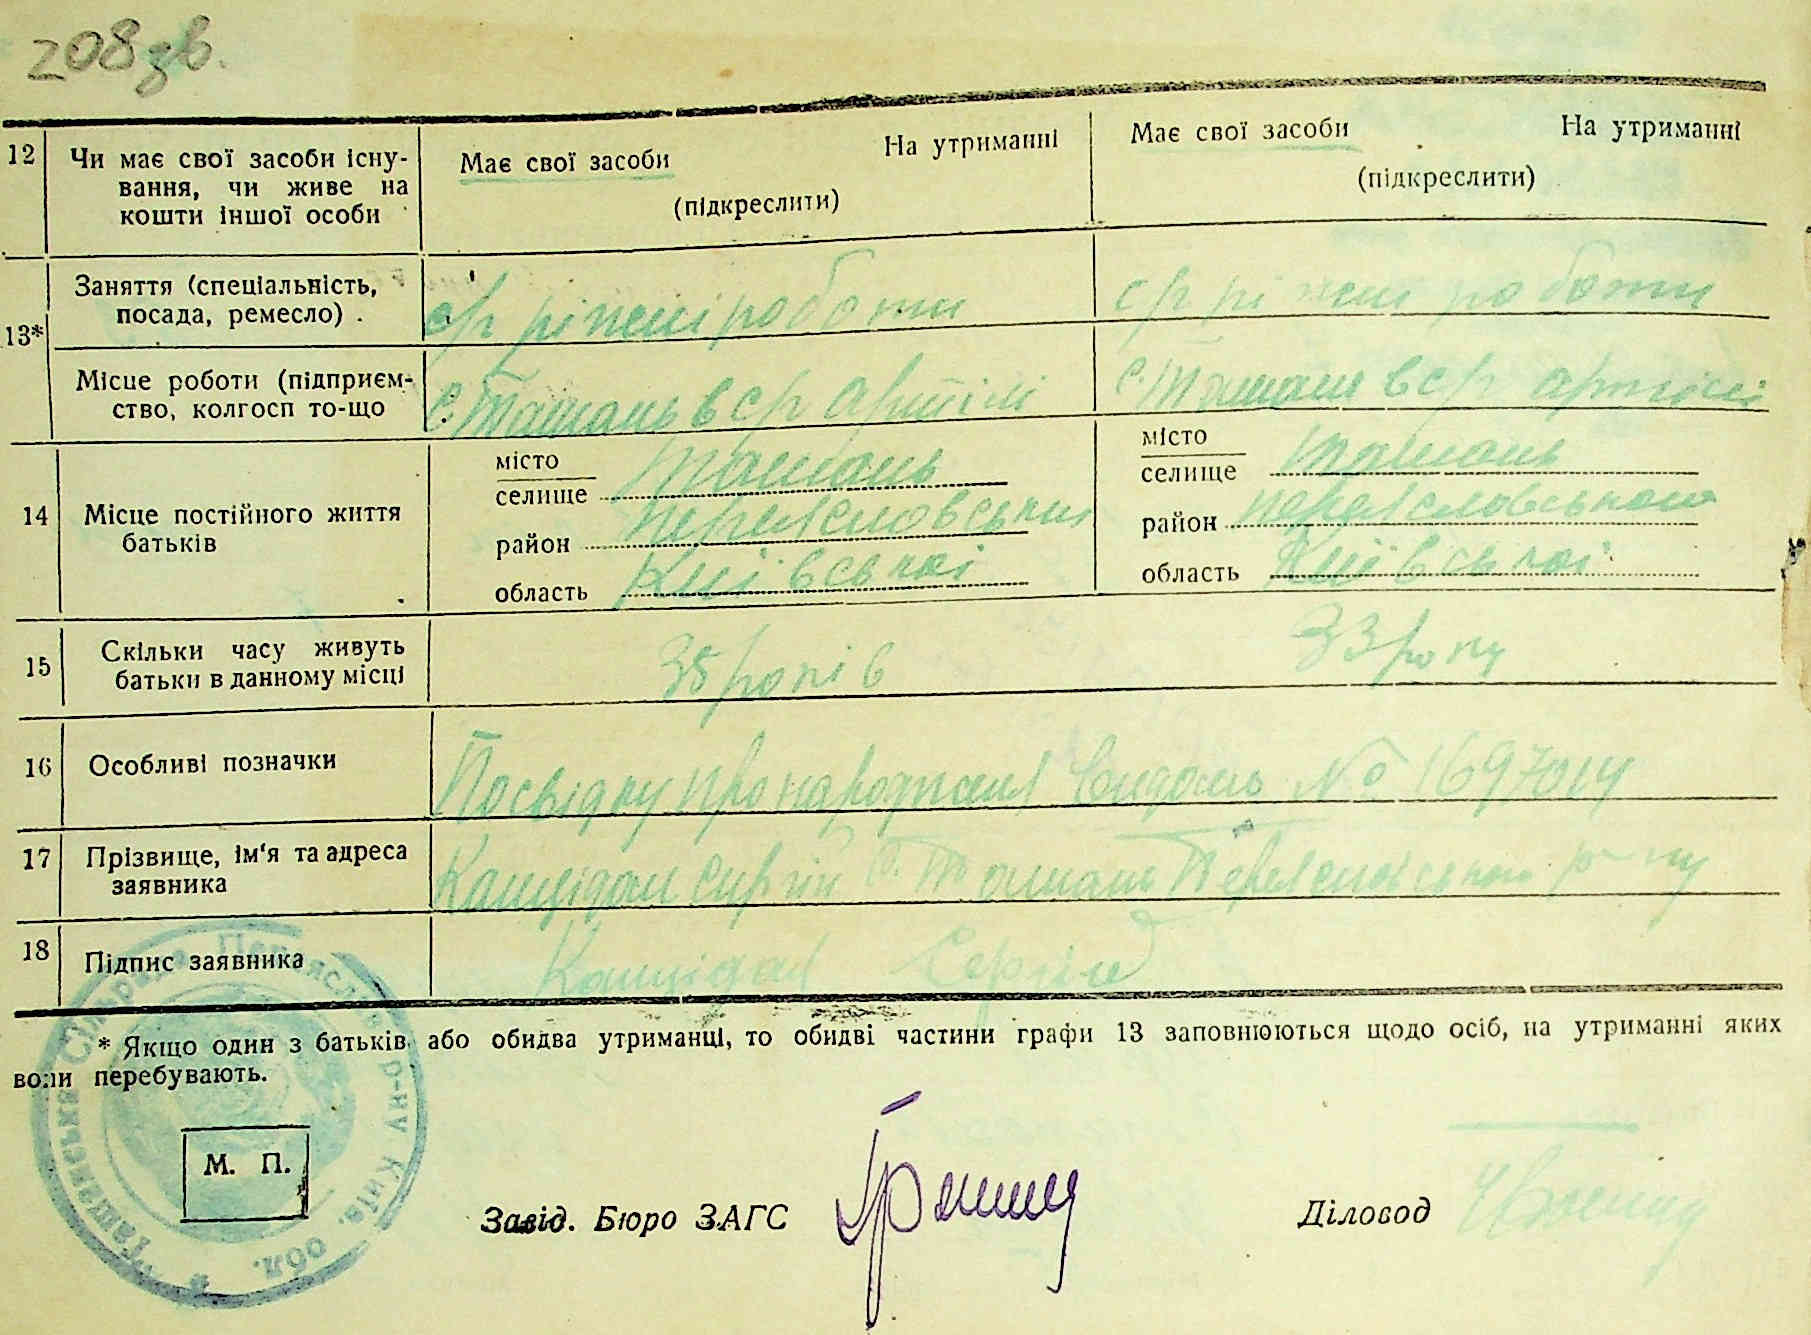 208 зв.
12 Чи має свої засоби існу- Має свої засоби На утриманні Має свої засоби На утриманні
вання, чи живе на (підкреслити) (підкреслити)
кошти іншої особи
13* Заняття (спеціальність, с/г ріжні роботи с/г ріжні роботи
посада, ремесло) .
Місце роботи (підприєм- с. Ташань в с/г артілі с. Ташань в с/г артілі
ство, колгосп то-що
14 Місце постійного життя батьків
місто
селище Ташань
район Переяславський
область Київської
місто
селище Ташань
район Переяславського
область Київської
15 Скільки часу живуть 35 років 33 року
батьки в данному місці
16 Особливі позначки Посвідку про народження видань № 1697014
17 Прізвище, ім'я та адреса Сиргій с. Ташань Переяславського р-ну
заявника
18 Підпис заявника Сергій
* Якщо один з батьків або обидва утриманці, то обидві частини графи 13 заповнюються щодо осіб, на утриманні яких
вони перебувають.
Ташанська Сільрада Переяслав. р-ну Київ. обл.
М. П.
Завід. Бюро ЗАГС
Діловод